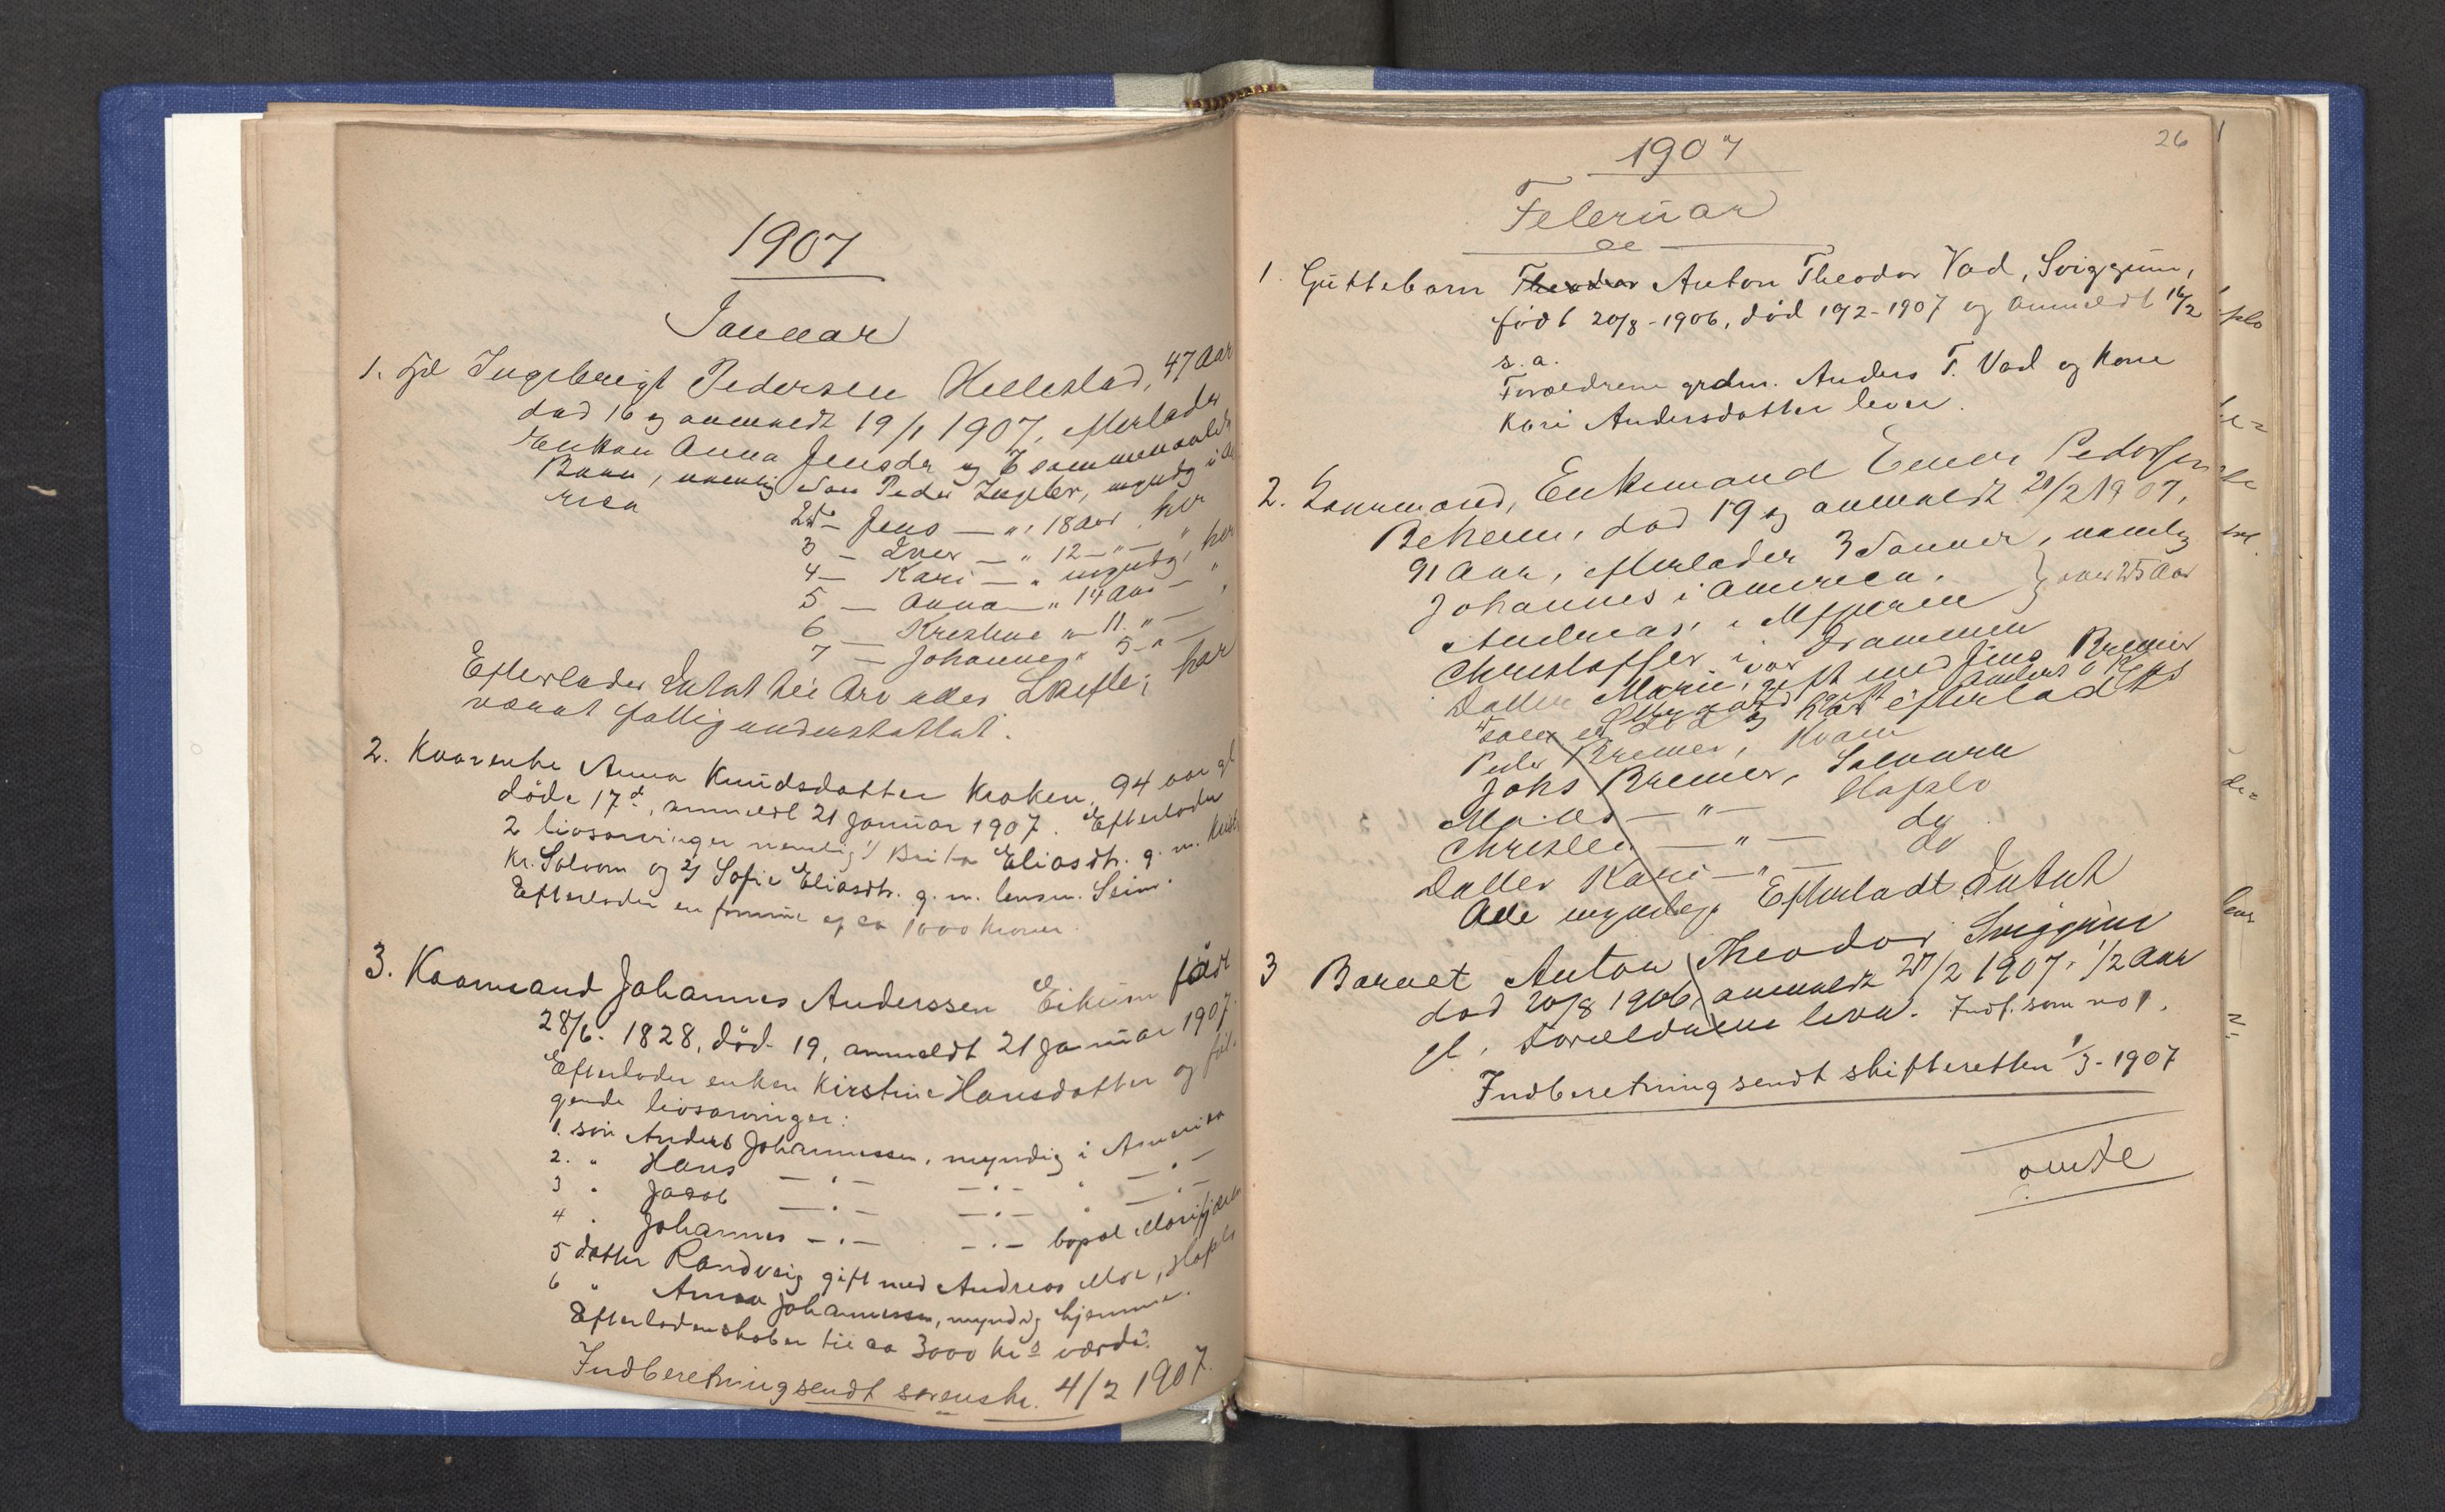 1907
Januar
1. Ingebrigt Pedersen Hillestad, 47 Aar
død 16 og anmeldt 19/1 1907, efterlader
Enken Anna Jensdr og 7 sammenavlede
Børn, nemlig Søn Peder Ingebr, myndig i Ame
rica
2 d° — Jens — „ 18 Aar, her
3 — Iver — „ 12 — „ — „
4 — Kari — „ myndig, her
5 — Anna — „ 14 Aar — „
6 — Kristine „ 11 „ —
7 — Johannes „ 5 „ —
Efterlader Intet til Arv eller Skifte; har
været fattigunderstøttet.
2. Kaarenke Anna Knudsdatter Kroken, 94 aar gl
døde 17d, anmeldt 21 Januar 1907. Efterlader
2 livsarvinger nemlig 1/ Brita Eliasdtr. g. m. Krist
Kr. Solvorn og 2/ Sofie Eliasdtr. g. m. lensm. Seim.
Efterlader en formue af ca 1000 kroner.
3. Kaarmand Johannes Anderssen Eikum født
28/6. 1828, død 19, anmeldt 21 Januar 1907.
Efterlader enken Kirstine Hansdatter og føl.
gende livsarvinger:
1. søn Anders Johannessen, myndig i Amerika
2. „ Hans — „ — — „ — „ — „ —
3 „ Jacob — „ — — „ — „ — „ —
4 „ Johannes — „ — — „ — bopæl Marifjæren
5 datter Randveig gift med Andreas Moe, Hafslo
6 „ Anna Johannessen, myndig hjemme.
Efterladenskaber til ca 3000 krs værdi.
Indberetning sendt sorenskr. 4/2 1907.
26
1907
Februar
1. Guttebarn Theodor Anton Theodor Vad, Sviggum,
født 20/8 - 1906, død 19/2 - 1907 og anmeldt 16/2
s. a.
Forældrene grdm. Anders T. Vad og kone
Kari Andersdatter lever.
2. Kaarmand, Enkemand Einer Pedersen
Beheim, død 19 og anmeldt 21/2 1907,
91 Aar, efterlader 3 Sønner, nemlig
Johannes i America,
Andreas, i } over 25 Aar
Christoffer i Drammen
Datter Marie, var gift med Jens Bremer
som er død og har efterladt
Peder Bremer, Kvam
Johs Bremer, Solvorn
— „ — Hafslo
Christen — „ — do
Datter Kari — „ — do
Alle myndige Efterladt Intet
3 Barnet Anton Theodor Sviggum
død 20/8 1906, anmeldt 21/2 1907, 1/2 Aar
gl. Forældrene lever. Indf. som no 1.
Indberetning sendt skifteretten 1/3 - 1907
omte